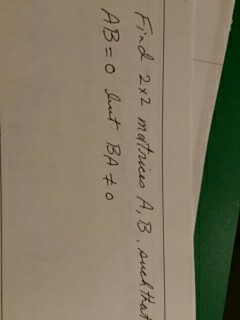 Find 2x2 matrices A, B, such that
AB = 0 but BA ≠ 0